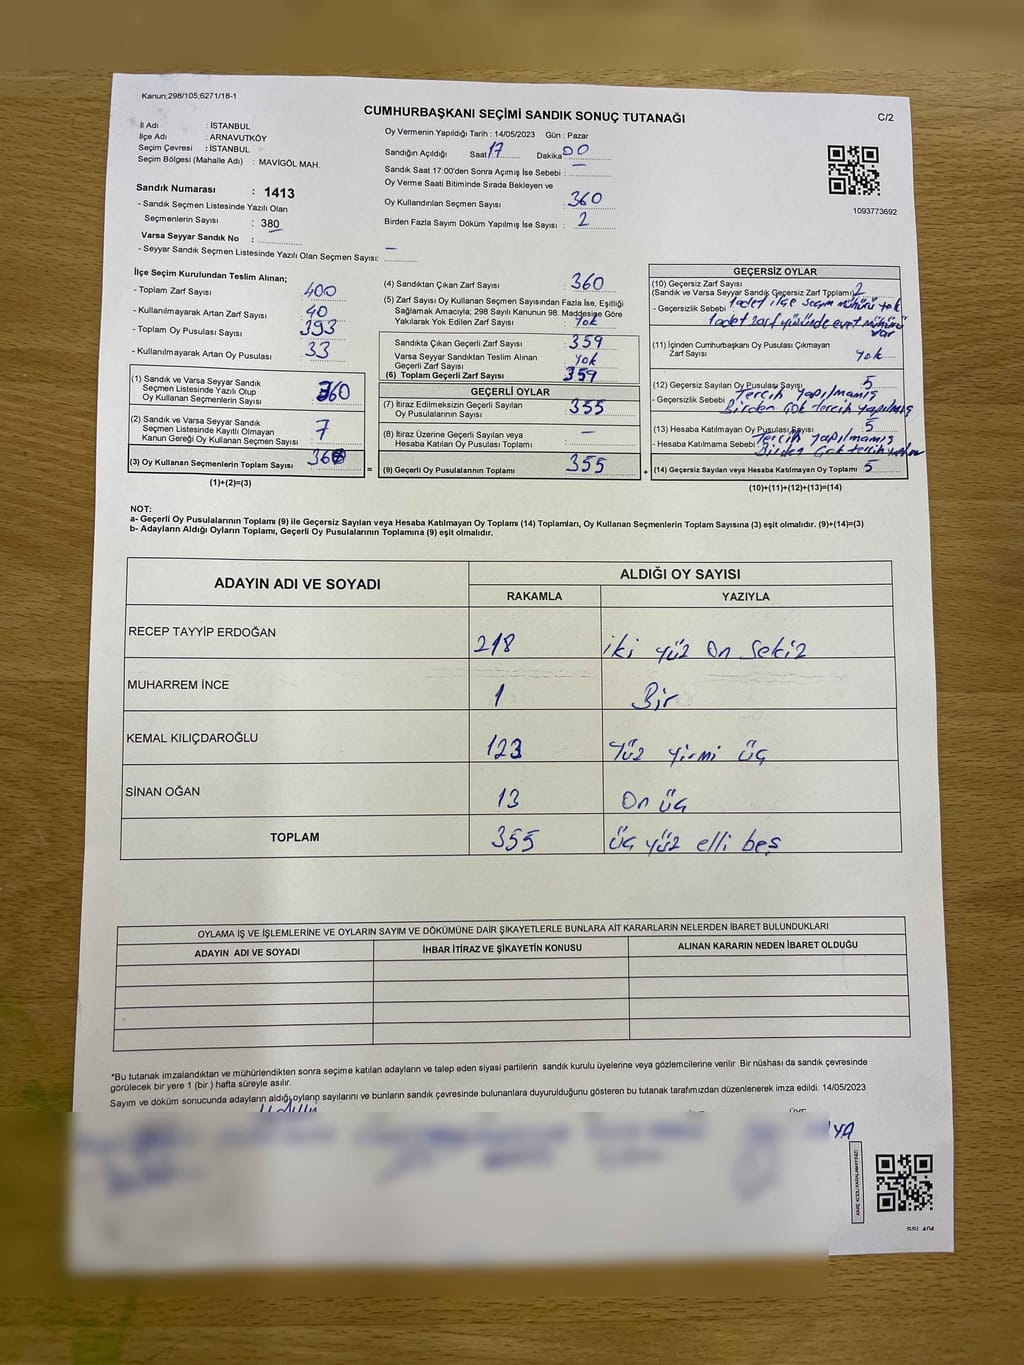 Kanun;298/105;6271/18-1
CUMHURBAŞKANI SEÇİMİ SANDIK SONUÇ TUTANAĞI
C/2
İl Adı : İSTANBUL
İlçe Adı : ARNAVUTKÖY
Seçim Çevresi : İSTANBUL
Seçim Bölgesi (Mahalle Adı) : MAVİGÖL MAH.
Sandık Numarası : 1413
- Sandık Seçmen Listesinde Yazılı Olan
Seçmenlerin Sayısı : 380
Varsa Seyyar Sandık No :
- Seyyar Sandık Seçmen Listesinde Yazılı Olan Seçmen Sayısı: —
Oy Vermenin Yapıldığı Tarih : 14/05/2023 Gün : Pazar
Sandığın Açıldığı Saat 17 Dakika 00
Sandık Saat 17:00'den Sonra Açımış İse Sebebi : —
Oy Verme Saati Bitiminde Sırada Bekleyen ve
Oy Kullandırılan Seçmen Sayısı 360
Birden Fazla Sayım Döküm Yapılmış İse Sayısı : 2
1093773692
İlçe Seçim Kurulundan Teslim Alınan;
- Toplam Zarf Sayısı 400
- Kullanılmayarak Artan Zarf Sayısı 40
- Toplam Oy Pusulası Sayısı 393
- Kullanılmayarak Artan Oy Pusulası 33
(1) Sandık ve Varsa Seyyar Sandık
Seçmen Listesinde Yazılı Olup
Oy Kullanan Seçmenlerin Sayısı 360
(2) Sandık ve Varsa Seyyar Sandık
Seçmen Listesinde Kayıtlı Olmayan
Kanun Gereği Oy Kullanan Seçmen Sayısı : 7
(3) Oy Kullanan Seçmenlerin Toplam Sayısı
(1)+(2)=(3)
=
(4) Sandıktan Çıkan Zarf Sayısı 360
(5) Zarf Sayısı Oy Kullanan Seçmen Sayısından Fazla İse, Eşitliği
Sağlamak Amacıyla; 298 Sayılı Kanunun 98. Maddesine Göre
Yakılarak Yok Edilen Zarf Sayısı : Yok
Sandıkta Çıkan Geçerli Zarf Sayısı : 359
Varsa Seyyar Sandıktan Teslim Alınan
Geçerli Zarf Sayısı : Yok
(6) Toplam Geçerli Zarf Sayısı 359
GEÇERLİ OYLAR
(7) İtiraz Edilmeksizin Geçerli Sayılan
Oy Pusulalarının Sayısı : 355
(8) İtiraz Üzerine Geçerli Sayılan veya
Hesaba Katılan Oy Pusulası Toplamı : —
(9) Geçerli Oy Pusulalarının Toplamı 355
+
GEÇERSİZ OYLAR
(10) Geçersiz Zarf Sayısı
(Sandık ve Varsa Seyyar Sandık Geçersiz Zarf Toplamı) 2
- Geçersizlik Sebebi 1 adet ilçe seçim mühürü yok
1 adet zarf yüzünde evet mühürü
var
(11) İçinden Cumhurbaşkanı Oy Pusulası Çıkmayan
Zarf Sayısı Yok
(12) Geçersiz Sayılan Oy Pusulası Sayısı 5
- Geçersizlik Sebebi Tercih yapılmamış
Birden Çok tercih yapılmış
(13) Hesaba Katılmayan Oy Pusulası Sayısı 5
- Hesaba Katılmama Sebebi Tercih yapılmamış
Birden Çok tercih
(14) Geçersiz Sayılan veya Hesaba Katılmayan Oy Toplamı 5
(10)+(11)+(12)+(13)=(14)
NOT:
a- Geçerli Oy Pusulalarının Toplamı (9) ile Geçersiz Sayılan veya Hesaba Katılmayan Oy Toplamı (14) Toplamları, Oy Kullanan Seçmenlerin Toplam Sayısına (3) eşit olmalıdır. (9)+(14)=(3)
b- Adayların Aldığı Oyların Toplamı, Geçerli Oy Pusulalarının Toplamına (9) eşit olmalıdır.
ADAYIN ADI VE SOYADI ALDIĞI OY SAYISI
RAKAMLA YAZIYLA
RECEP TAYYİP ERDOĞAN 218 iki yüz on sekiz
MUHARREM İNCE 1 Bir
KEMAL KILIÇDAROĞLU 123 Yüz yirmi üç
SİNAN OĞAN 13 On üç
TOPLAM 355 üç yüz elli beş
OYLAMA İŞ VE İŞLEMLERİNE VE OYLARIN SAYIM VE DÖKÜMÜNE DAİR ŞİKAYETLERLE BUNLARA AİT KARARLARIN NELERDEN İBARET BULUNDUKLARI
ADAYIN ADI VE SOYADI İHBAR İTİRAZ VE ŞİKAYETİN KONUSU ALINAN KARARIN NEDEN İBARET OLDUĞU
*Bu tutanak imzalandıktan ve mühürlendikten sonra seçime katılan adayların ve talep eden siyasi partilerin sandık kurulu üyelerine veya gözlemcilerine verilir .Bir nüshası da sandık çevresinde
görülecek bir yere 1 (bir ) hafta süreyle asılır.
Sayım ve döküm sonucunda adayların aldığı oyların sayılarını ve bunların sandık çevresinde bulunanlara duyurulduğunu gösteren bu tutanak tarafımızdan düzenlenerek imza edildi. 14/05/2023
ÜYE
YA
KARE KODU KARALAMAYINIZ!